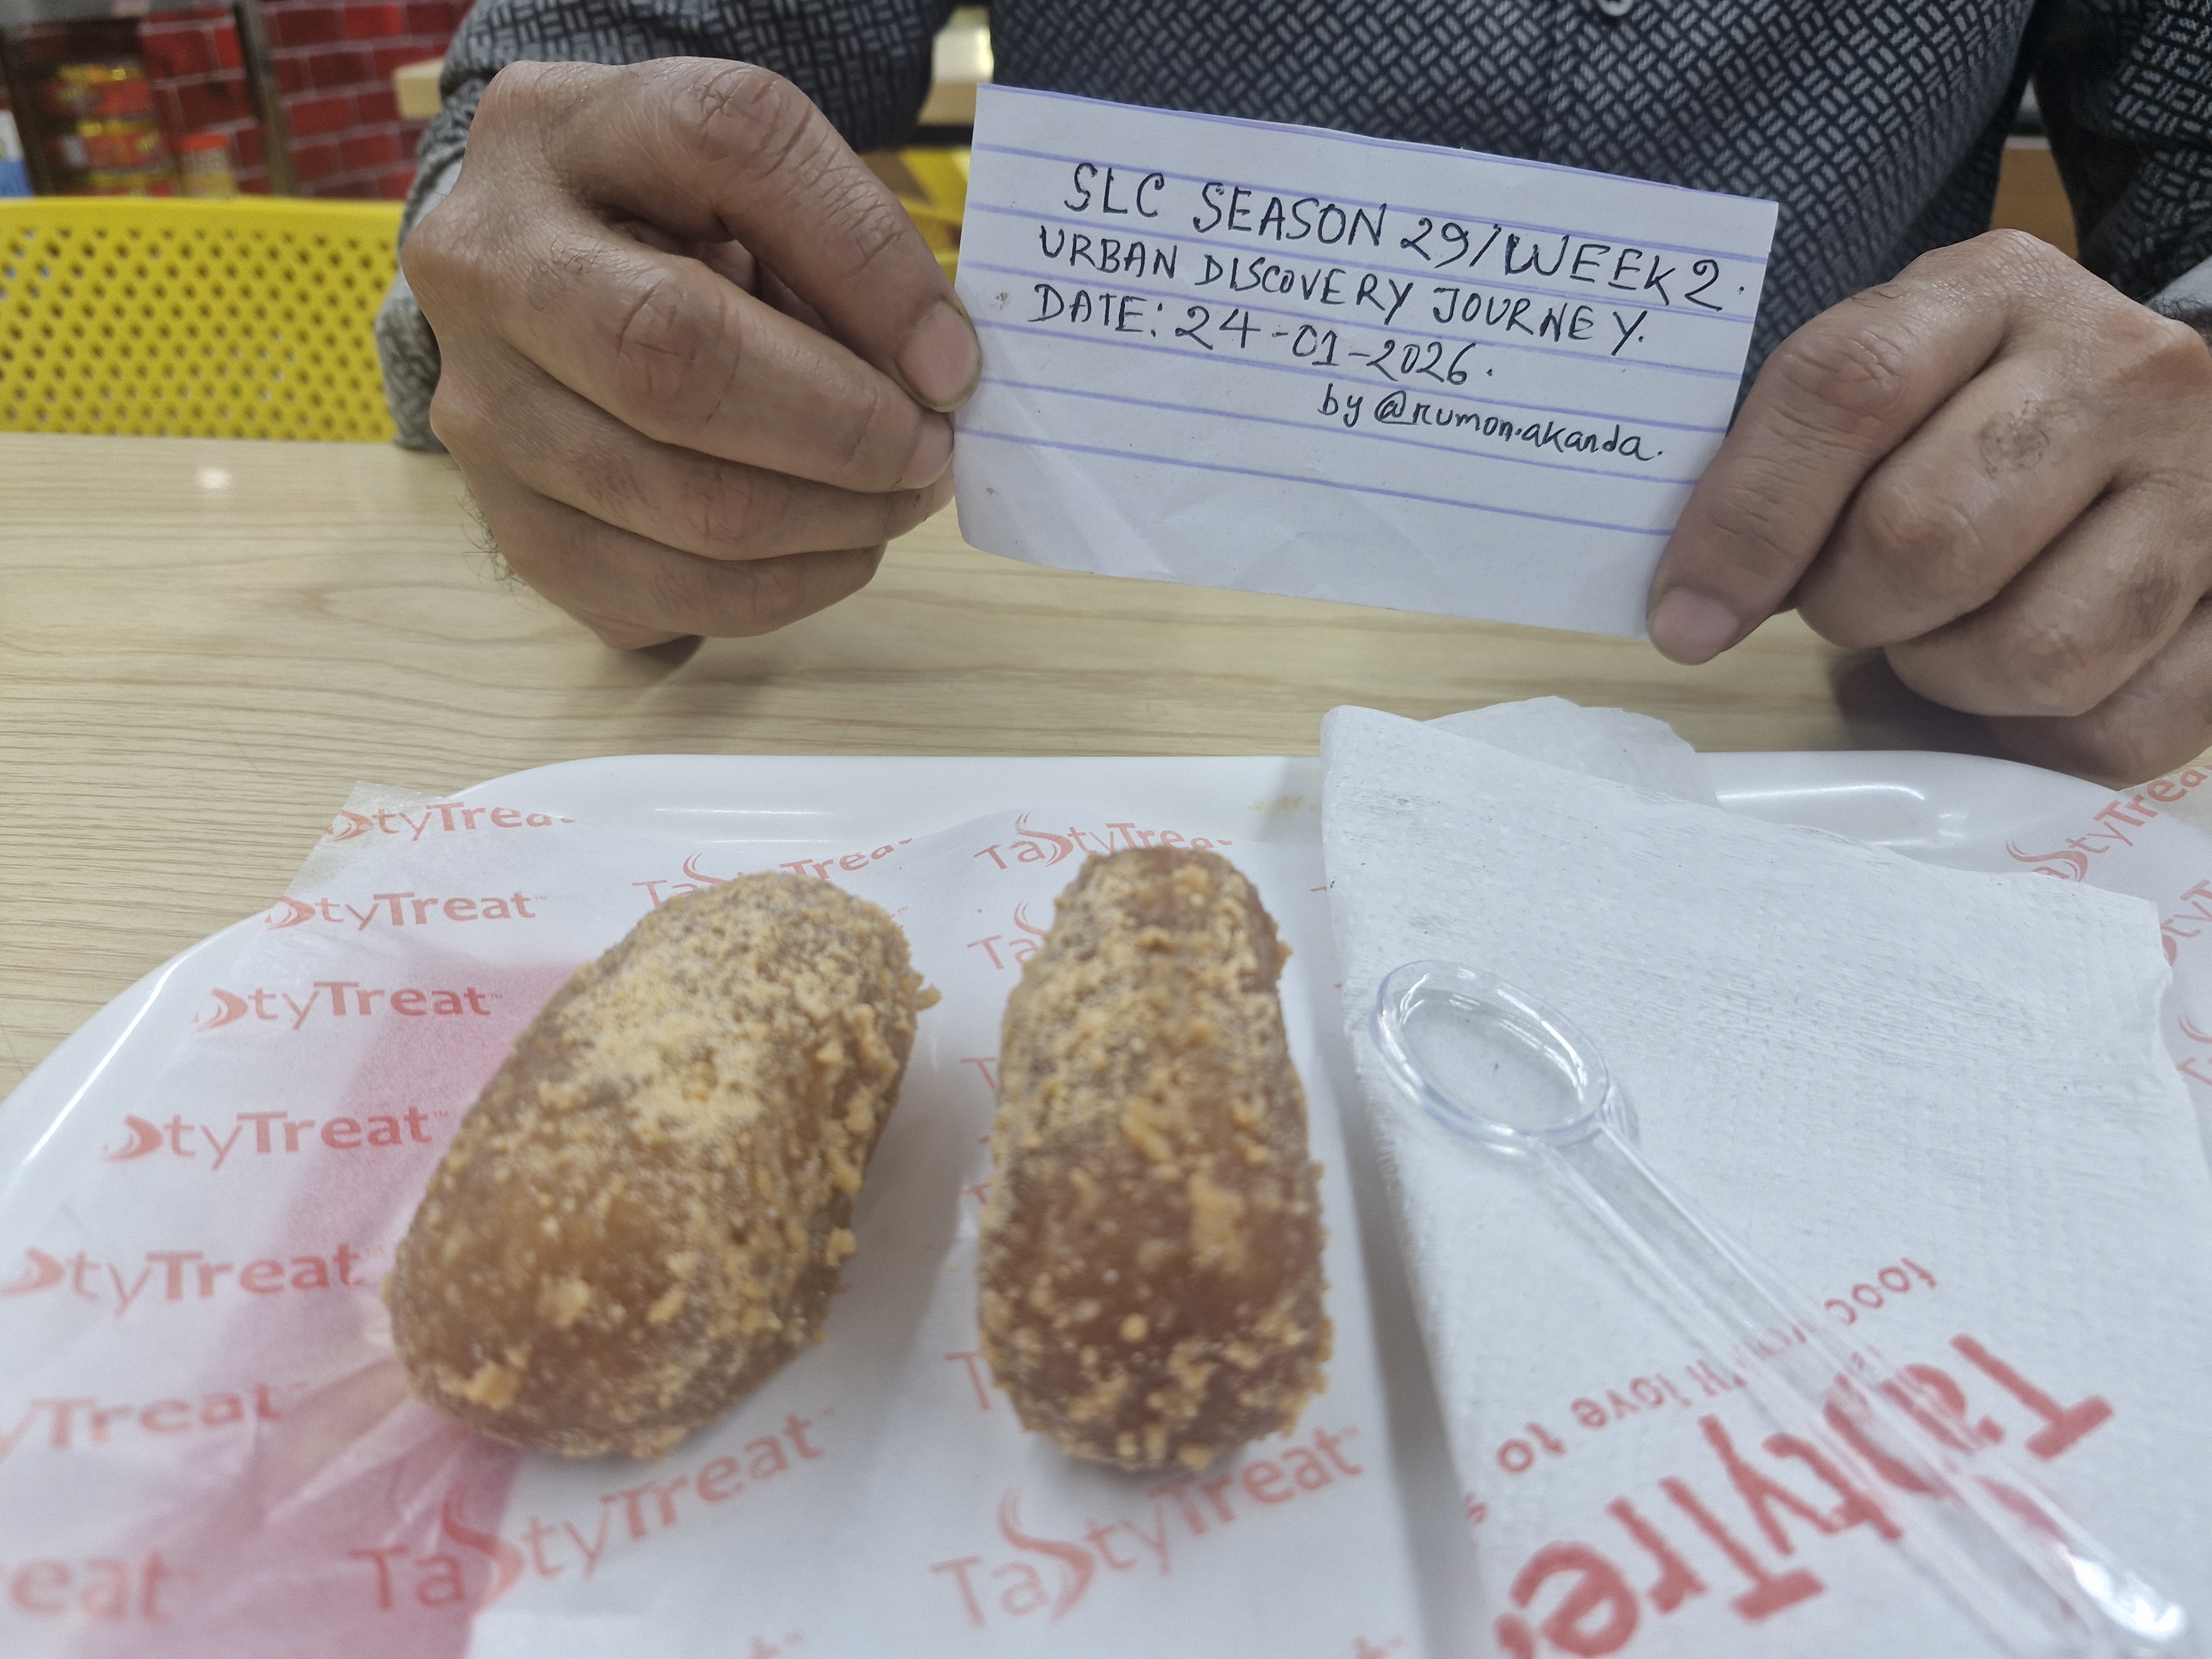 SLC SEASON 29/WEEK 2.
URBAN DISCOVERY JOURNEY.
DATE: 24-01-2026.
by @rumon.akanda.
styTreat
TastyTreat
TastyTreat
styTreat™
TastyTreat
styTreat™
styTreat™
styTreat
yTreat
TastyTreat™
TastyTreat™
eat
TastyTre
love to